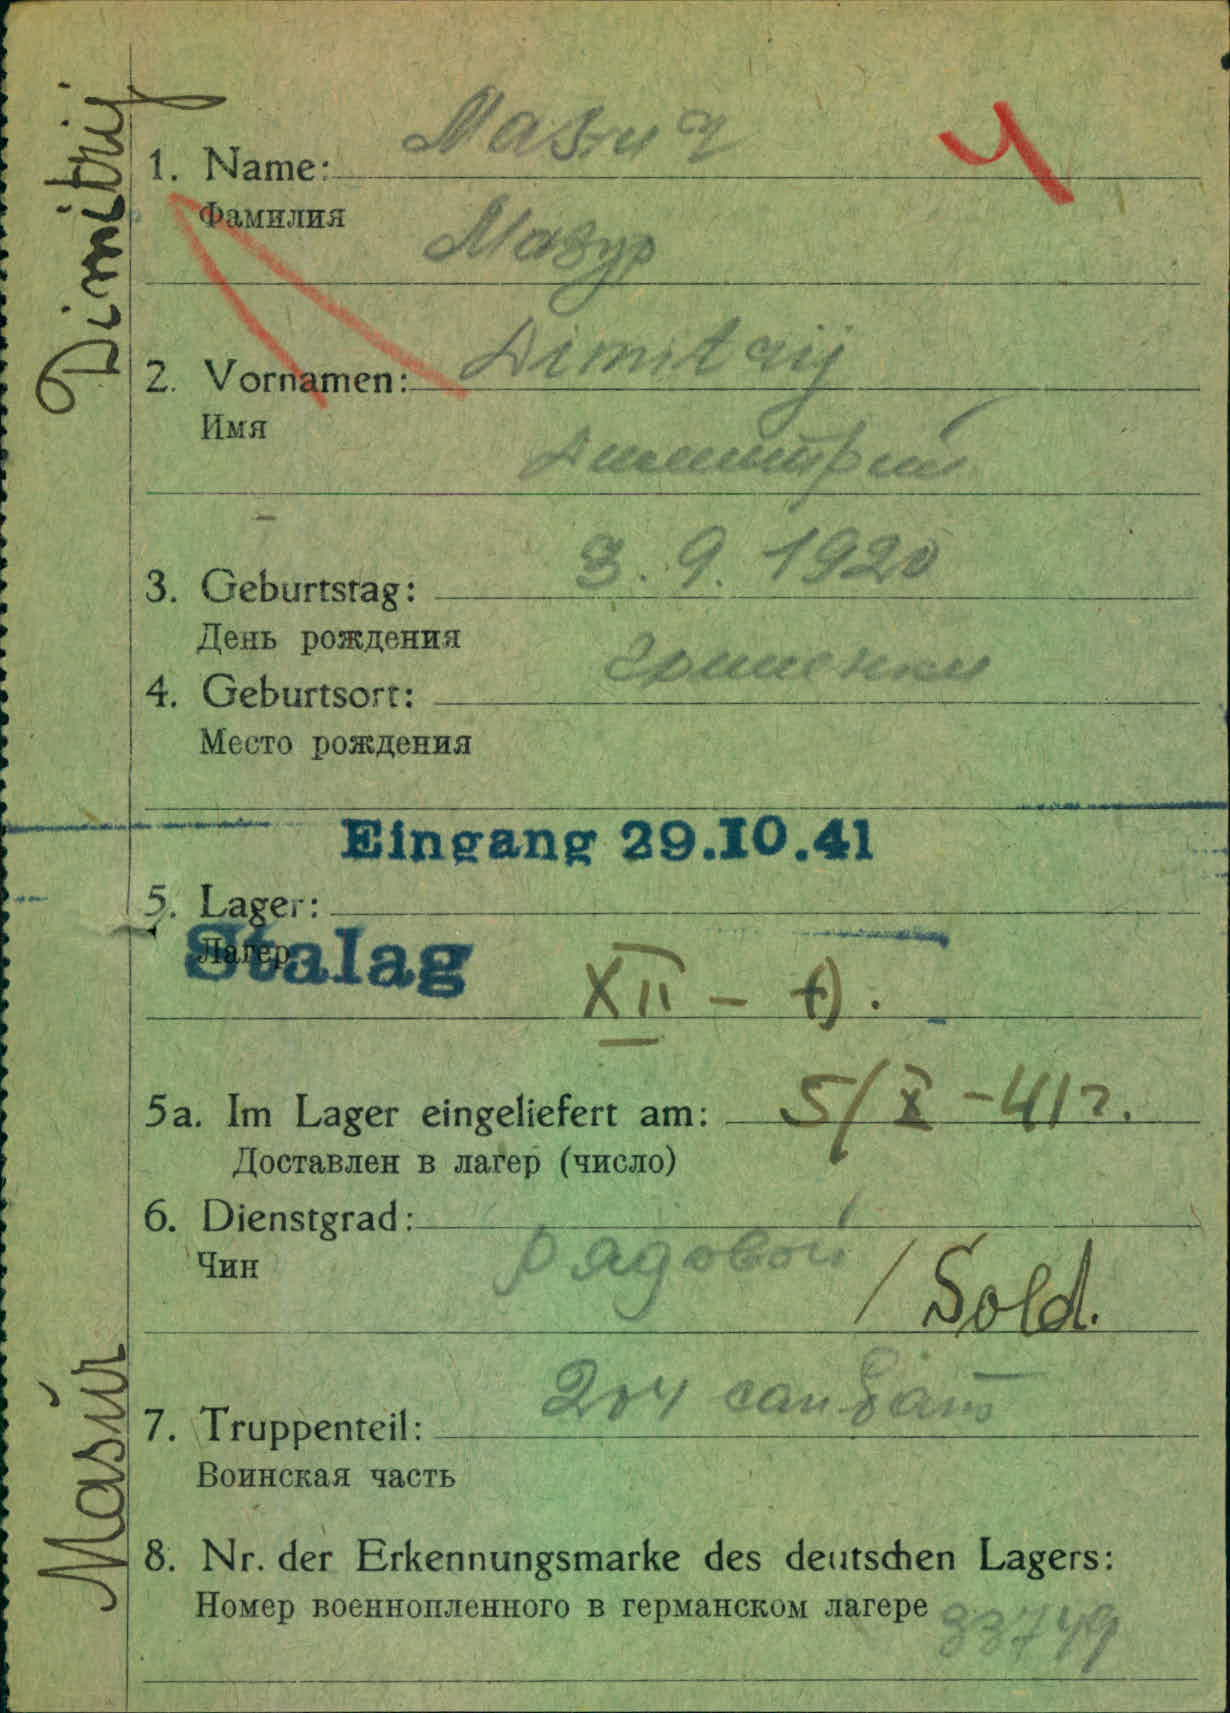 Dimitrij
Masur
1. Name: Masur
Фамилия
Мазур
2. Vornamen: Dimitrij
Имя
Димитрий
3. Geburtstag: 3. 9. 1920
День рождения
4. Geburtsort:
Место рождения
Eingang 29.10.41
5. Lager:
Лагер
Stalag XII -
5a. Im Lager eingeliefert am: 5/X -41г.
Доставлен в лагер (число)
6. Dienstgrad:
Чин
рядовой / Sold.
7. Truppenteil: 204 сан бат
Воинская часть
8. Nr. der Erkennungsmarke des deutschen Lagers:
Номер военнопленного в германском лагере 33749